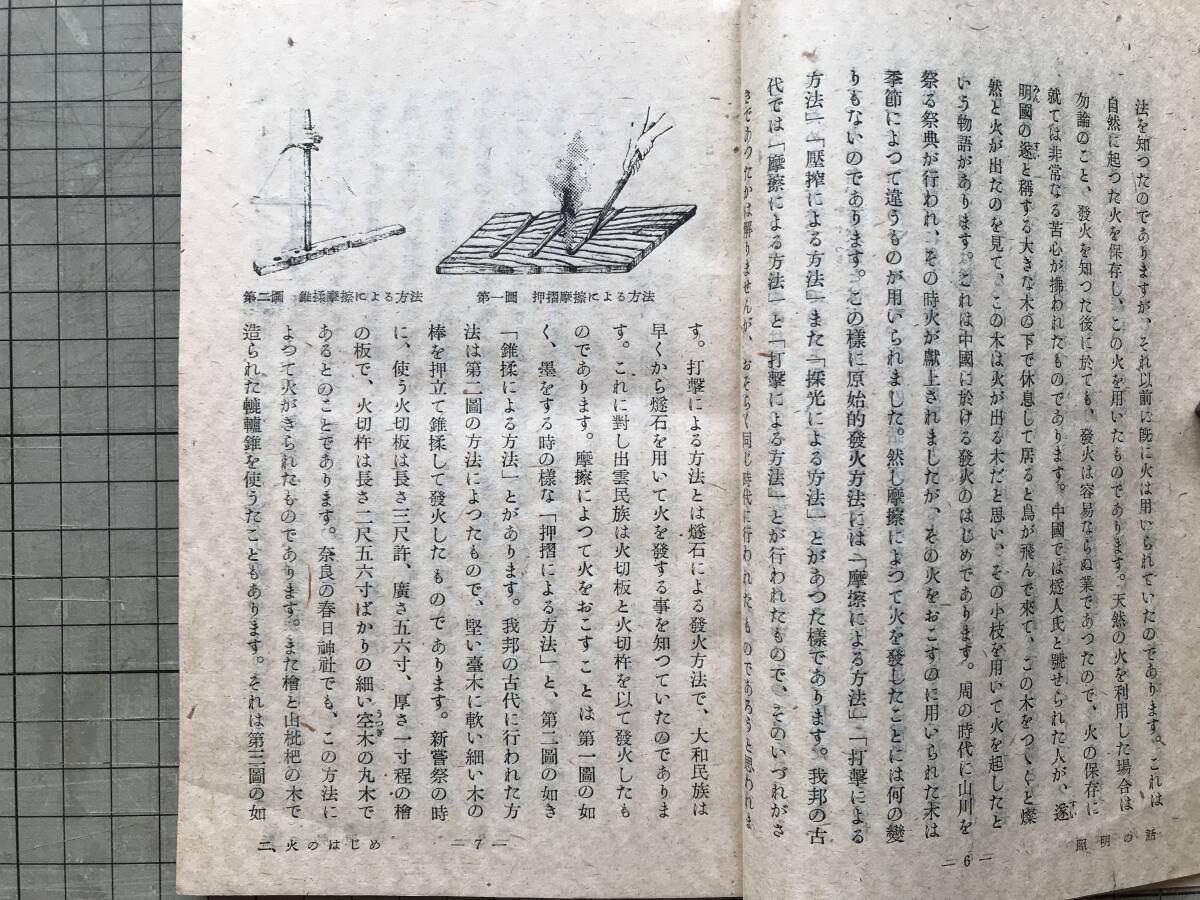 法を知つたのでありますが、それ以前に既に火は用いられていたのであります。これは
自然に起つた火を保存し、この火を用いたものであります。天然の火を利用した場合は
勿論のこと、發火を知つた後に於ても、發火は容易ならぬ業であつたので、火の保存に
就ては非常なる苦心が拂われたものであります。中國では燧人氏と號せられた人が、遂
明國の遂と稱する大きな木の下で休息して居ると鳥が飛んで來て、この木をつくと燦
然と火が出たのを見て、この木は火が出る木だと思い、その小枝を用いて火を起したと
いう物語があります。これは中國に於ける發火のはじめであります。周の時代に山川を
祭る祭典が行われ、その時火が獻上されましたが、その火をおこすのに用いられた木は
季節によつて違うものが用いられました。然し摩擦によつて火を發したことには何の變
りもないのであります。この樣に原始的發火方法には「摩擦による方法」「打擊による
方法」「壓搾による方法」また「採光による方法」とがあつた樣であります。我邦の古
代では「摩擦による方法」と「打擊による方法」とが行われたもので、そのいづれがさ
きであつたかは解りませんが、おそらく同じ時代に行われたものであろうと思われま
照明の話
— 6 —
第一圖 押摺摩擦による方法
第二圖 錐揉摩擦による方法
す。打擊による方法とは燧石による發火方法で、大和民族は
早くから燧石を用いて火を發する事を知つていたのでありま
す。これに對し出雲民族は火切板と火切杵を以て發火したも
のであります。摩擦によつて火をおこすことは第一圖の如
く、墨をする時の樣な「押摺による方法」と、第二圖の如き
「錐揉による方法」とがあります。我邦の古代に行われた方
法は第二圖の方法によつたもので、堅い臺木に軟い細い木の
棒を押立て錐揉して發火したものであります。新嘗祭の時
に、使う火切板は長さ三尺許、廣さ五六寸、厚さ一寸程の檜
の板で、火切杵は長さ二尺五六寸ばかりの細い空木の丸木で
あるとのことであります。奈良の春日神社でも、この方法に
よつて火がきられたものであります。また檜と山枇杷の木で
造られた轆轤錐を使うたこともあります。それは第三圖の如
二、火のはじめ
— 7 —